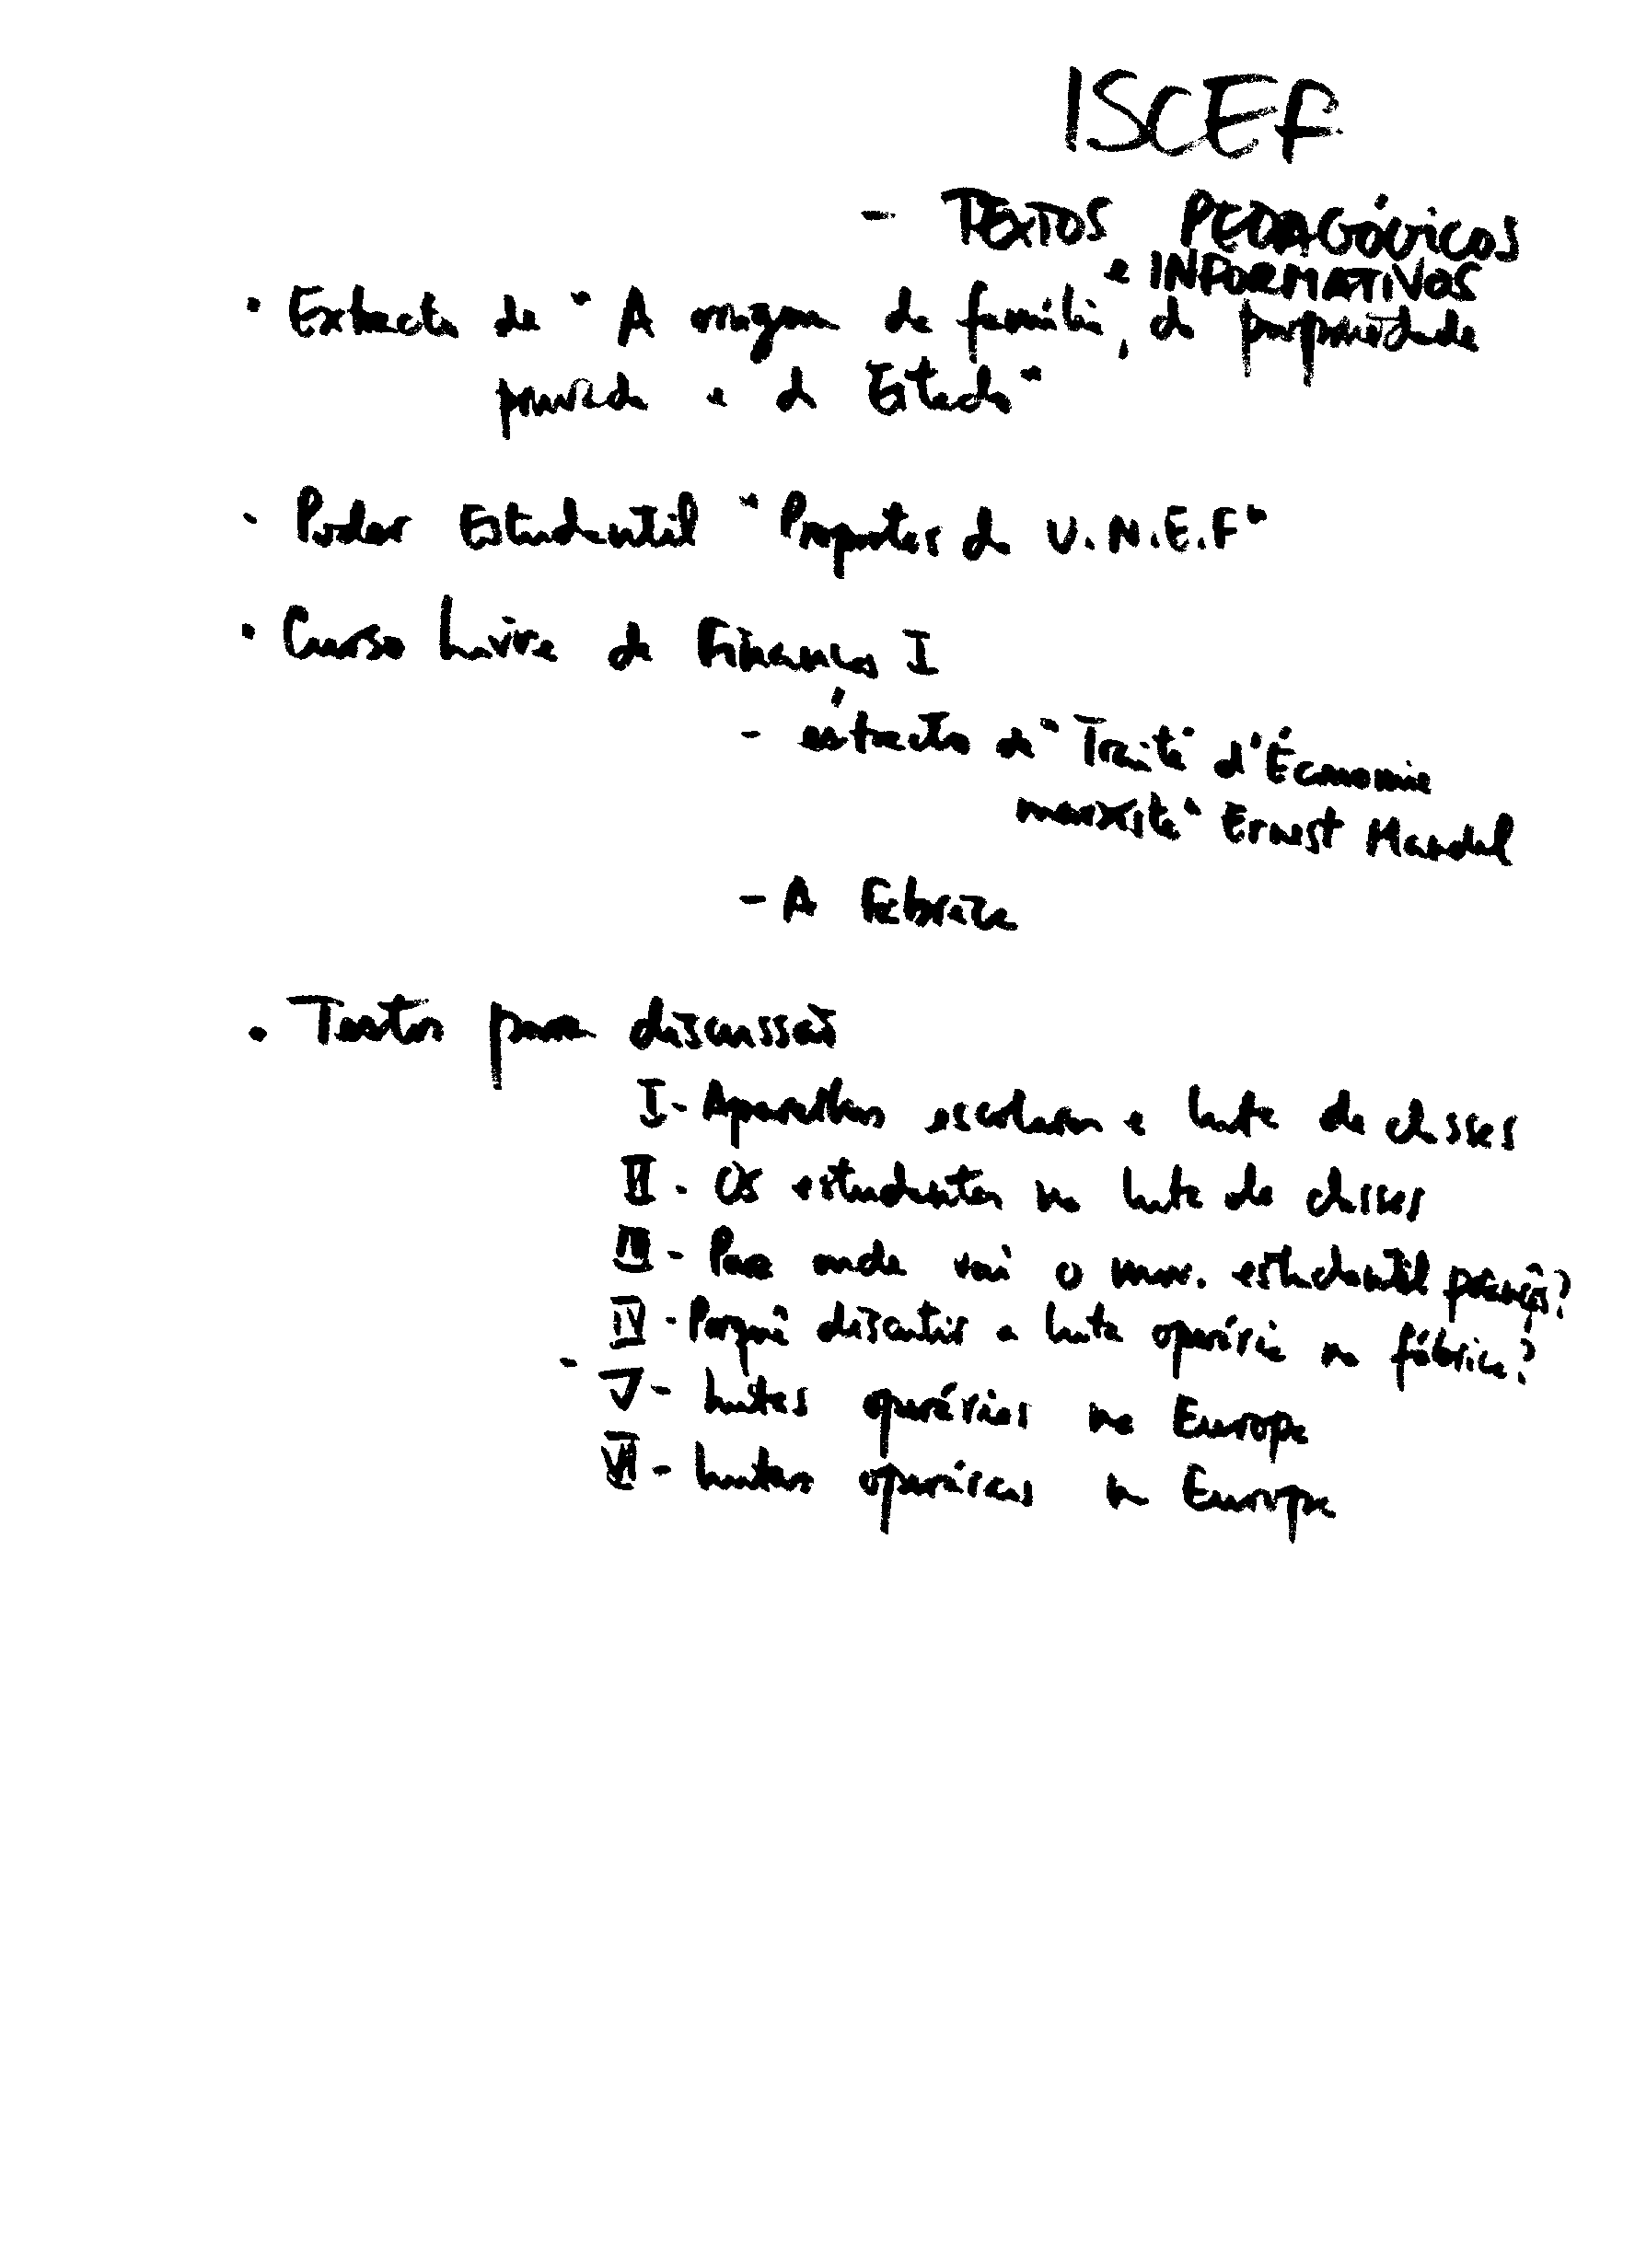 ISCEF
- TEXTOS PEDAGÓGICOS
e INFORMATIVOS
• Extracto de "A origem da família, da propriedade
privada e do Estado"
- Poder Estudantil "Propostas da U.N.E.F"
• Curso Livre de Finanças I
- extracto de "Traité d'Économie
marxiste" Ernest Mandel
- A
• Textos para discussão
I - Aparelhos escolares e luta de classes
II - Os estudantes na luta de classes
III - Para onde vai o mov. estudantil francês?
IV - Porquê discutir a luta operária na fábrica?
V - Lutas operárias na Europa
VI - Lutas operárias na Europa